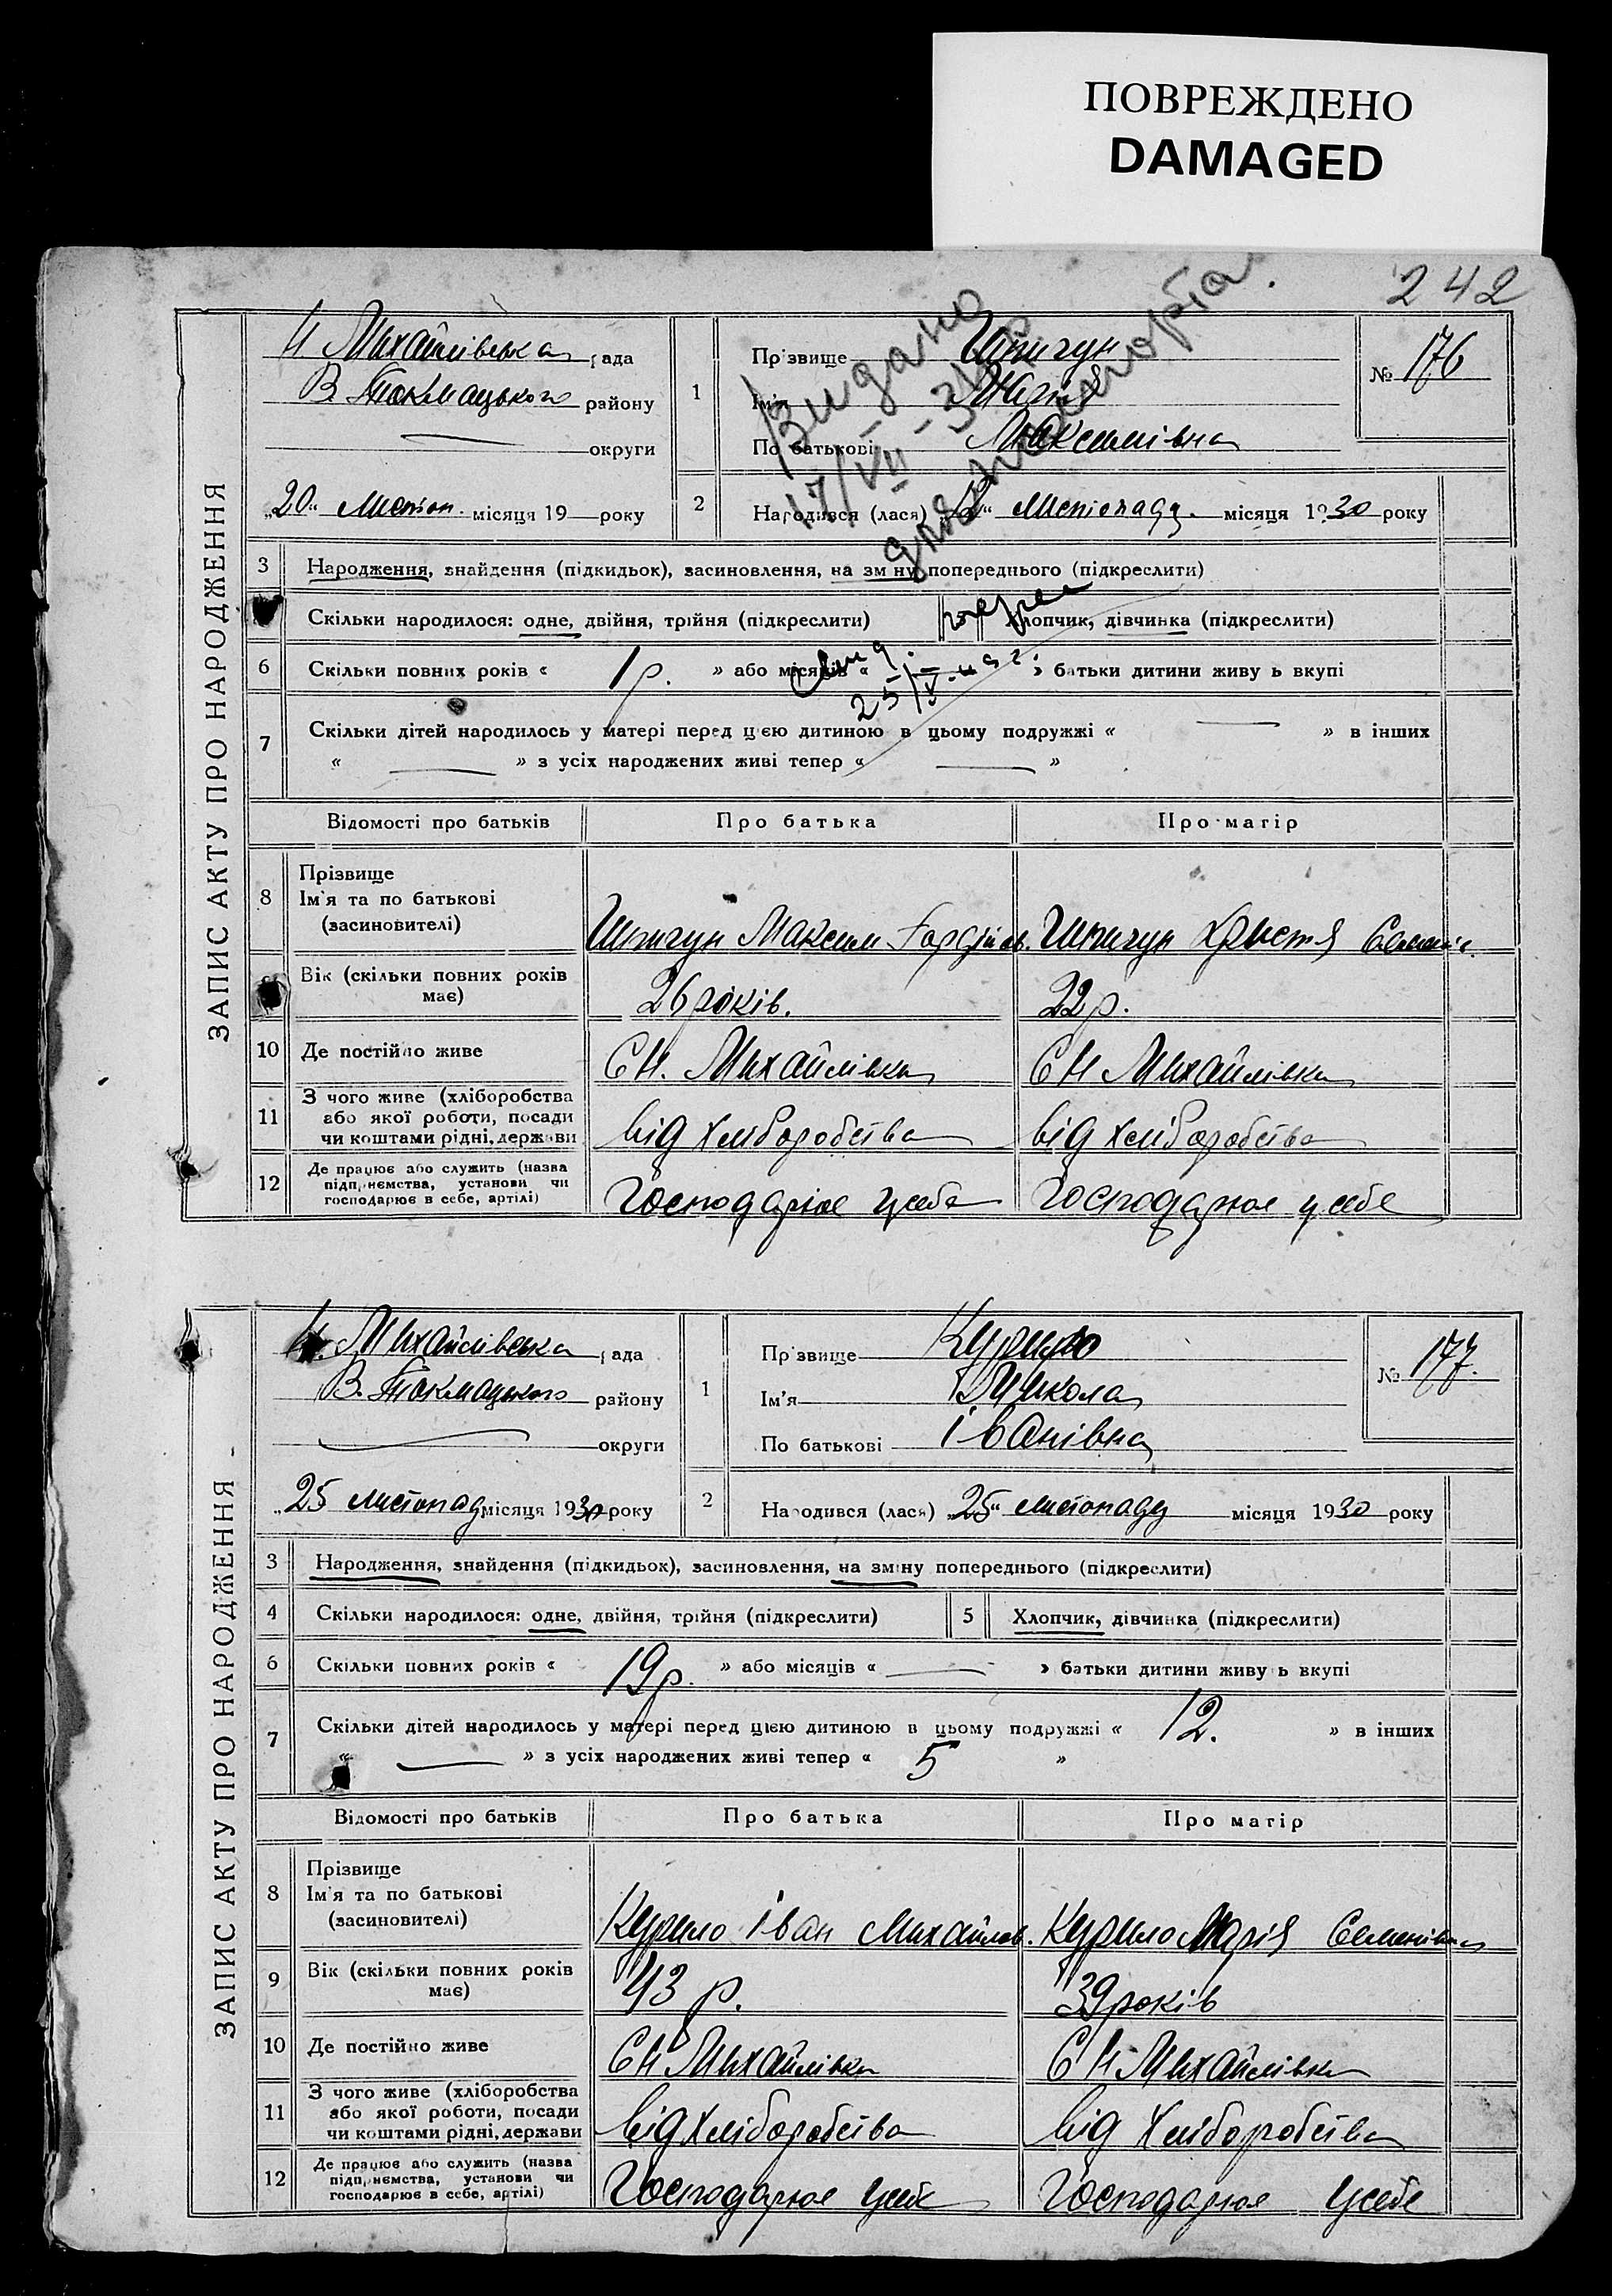 ПОВРЕЖДЕНО
DAMAGED
242
ЗАПИС АКТУ ПРО НАРОДЖЕННЯ
Н Михайлівська рада
В. Токмацького району
округи
„20“ листоп. місяця 19 року
1
Прізвище Шпигун
Ім'я
По батькові Максимівна
№ 176
2
Народився (лася) листопаду. місяця 1930 року
Видано
17/VII-
для
3 Народження, знайдення (підкидьок), засиновлення, на зміну попереднього (підкреслити)
Скільки народилося: одне, двійня, трійня (підкреслити)
Хлопчик, дівчинка (підкреслити)
6 Скільки повних років « 1 р. » або місяців « » батьки дитини живуть вкупі
7 Скільки дітей народилось у матері перед цією дитиною в цьому подружжі « — » в інших
« — » з усіх народжених живі тепер « — »
Відомості про батьків Про батька Про матір
8 Прізвище
Ім'я та по батькові
(засиновителі)
Шпигун Максим Гордійов. Шпигун Христя Семенів.
Вік (скільки повних років
має)
26 років. 22 р.
10 Де постійно живе С Н. Михайлівка С Н Михайлівка
11 З чого живе (хліборобства
або якої роботи, посади
чи коштами рідні, держави
від хліборобства від хліборобства
12 Де працює або служить (назва
підприємства, установи чи
господарює в себе, артілі)
Господарює у себе Господарює у себе
ЗАПИС АКТУ ПРО НАРОДЖЕННЯ
Н. Михайлівська рада
В. Токмацького району
округи
„25 листопад місяця 1930 року
1
Прізвище Курило
Ім'я Микола
По батькові Іванівна
№ 177.
2
Народився (лася) „25“ листопаду місяця 1930 року
3 Народження, знайдення (підкидьок), засиновлення, на зміну попереднього (підкреслити)
4 Скільки народилося: одне, двійня, трійня (підкреслити) 5 Хлопчик, дівчинка (підкреслити)
6 Скільки повних років « 19 р. » або місяців « — » батьки дитини живуть вкупі
7 Скільки дітей народилось у матері перед цією дитиною в цьому подружжі « 12. » в інших
« — » з усіх народжених живі тепер « 5 »
Відомості про батьків Про батька Про матір
8 Прізвище
Ім'я та по батькові
(засиновителі)
Курило Іван Михайлов. Курило Марія Семенівна
9 Вік (скільки повних років
має)
43 р. 39 років
10 Де постійно живе С Н Михайлівка С Н Михайлівка
11 З чого живе (хліборобства
або якої роботи, посади
чи коштами рідні, держави
від хліборобства від хліборобства
12 Де працює або служить (назва
підприємства, установи чи
господарює в себе, артілі)
Господарює у себе Господарює у себе